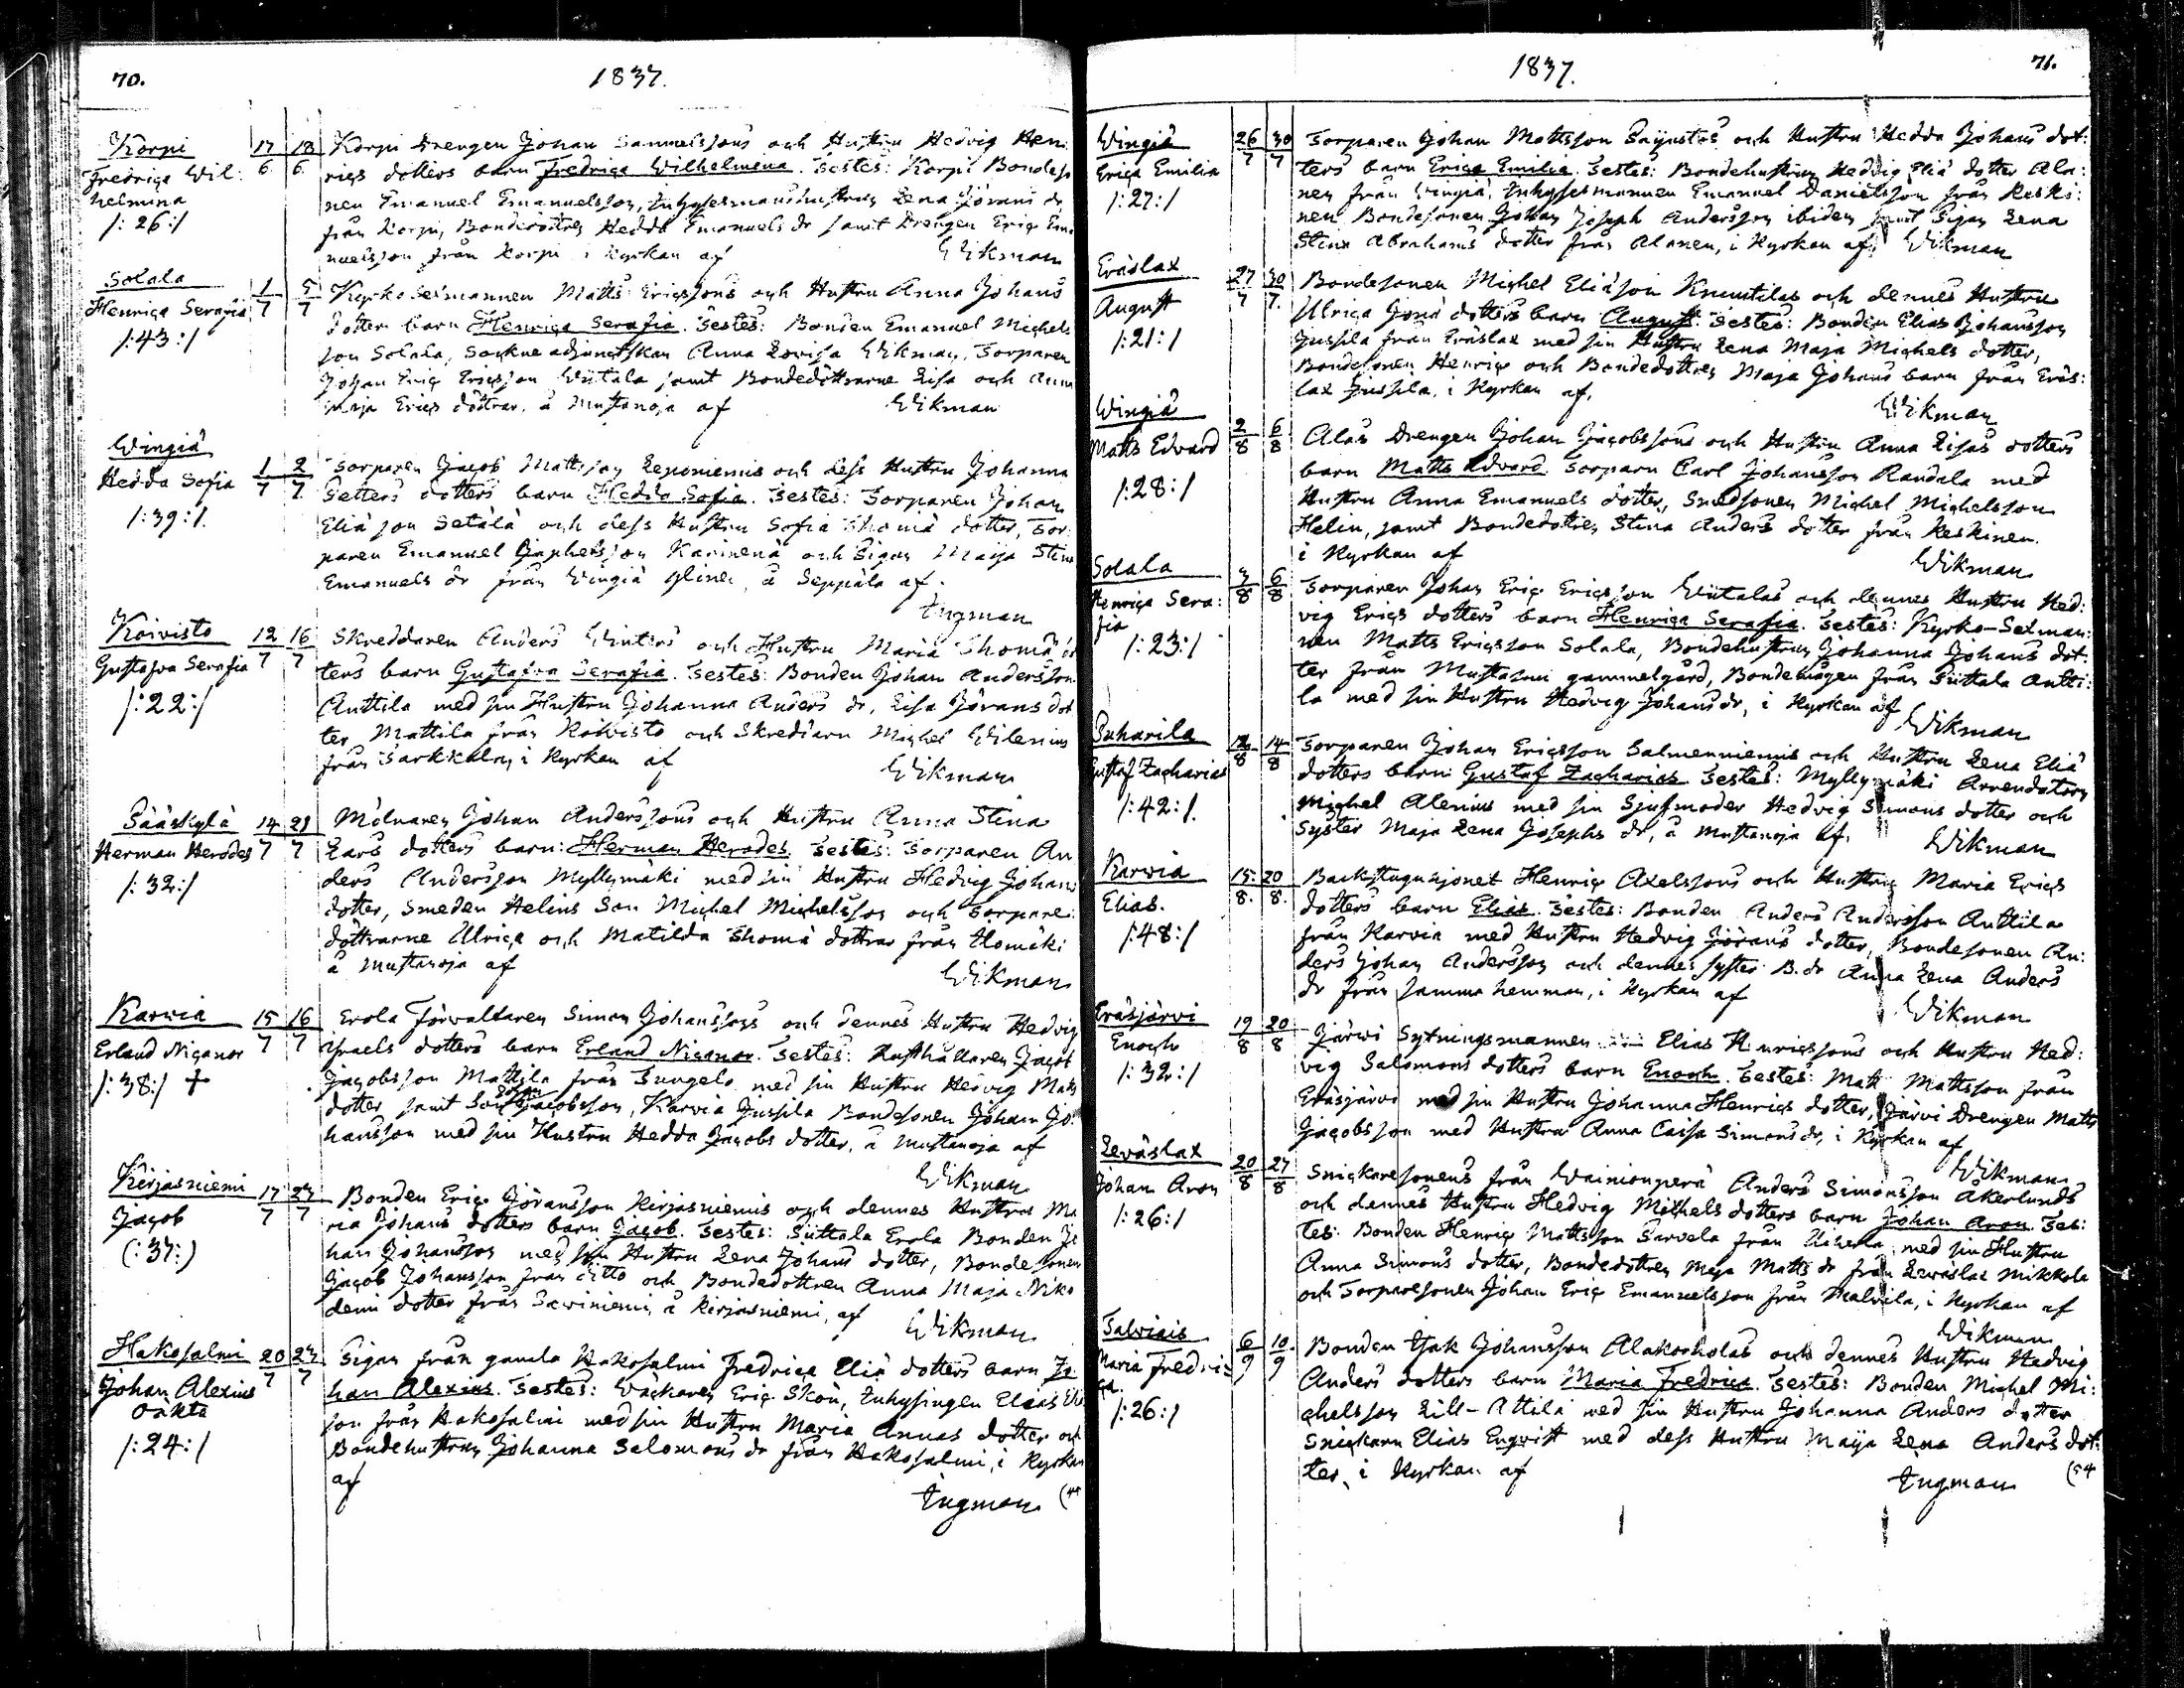 70.
1837.
Korpi
Fredrica Wil:
helmina
/: 26:/
17 18
6 6
Korpi Drengen Johan Samuelssons och Hustru Hedvig Hen
rics dotters barn Fredrica Wilhelmina. Testes: Korpi Bondeso
nen Emanuel Emanuelsson, Inhysesmanshustrun Lena Görans dr
från Korpi, Bondedottren Hedda Emanuels dr samt Drengen Eric Ema
nuelsson från Korpi i Kyrkan af Wikman
Solala
Henrica Serafia
/:43:/
1 5
7 7
Kyrko Sexmannen Matts Ericssons och Hustru Anna Johans
dotters barn Henrica Serafia. Testes: Bonden Emanuel Michels
son Solala, Sockneadjunctskan Anna Lovisa Wikman, Torparen
Johan Eric Ericsson Wiitala samt Bondedöttrarne Lisa och Anna
Maja Erics döttrar, å Mustanoja af Wikman
Wingiä
Hedda Sofia
/:39:/
1 2
7 7
Torparen Jacob Mattsson Leponiemis och dess Hustru Johanna
Petters dotters barn Hedda Sofia. Testes: Torparen Johan
Eliä son Setälä och dess Hustru Sofia Thomä dotter, Tor
paren Emanuel Japhetsson Karinenä och Pigan Maija Stina
Emanuels dr från Wingiä Yliner, å Seppälä af.
Ingman
Koivisto
Gustafva Serafia
/:22:/
12 16
7 7
Skreddaren Anders Winters och Hustru Maria Thomä dot
ters barn Gustafva Serafia. Testes: Bonden Johan Andersson
Anttila med sin Hustru Johanna Anders dr, Lisa Görans dot
ter Mattila från Koivisto och Skreddarn Michel Wilenius
från Sarkkila, i Kyrkan af Wikman
Sääskylä
Herman Herodes
/: 32:/
14 21
7 7
Mölnaren Johan Anderssons och Hustru Anna Stina
Lars dotters barn: Herman Herodes. Testes: Torparen An
ders Andersson Myllymäki med sin Hustru Hedvig Johans
dotter, Smeden Helins Son Michel Michelsson och Torpare
döttrarne Ulrica och Matilda Thomä döttrar från Ilomäki
å Mustanoja af Wikman
Karvia
Erland Nicanor
/: 38:/ +
15 16
7 7
Erola Förvaltaren Simon Johanssons och dennes Hustru Hedvig
Israels dotters barn Erland Nicanor. Testes: Rusthållaren Jacob
Jacobsson Mattila från Sungels med sin Hustru Hedvig Matts
dotter samt Son Jacobsson, Karvia Jussila Bondesonen Johan Jo
hansson med sin Hustru Hedda Jacobs dotter, å Mustanoja af
Wikman
Kirjasniemi
Jacob
(:37:)
17 23
7 7
Bonden Eric Göransson Kirjasniemis och dennes Hustru Ma
ria Johans dotters barn Jacob. Testes: Suttala Erola Bonden Jo
han Johansson med sin Hustru Lena Johans dotter, Bondesonen
Jacob Johansson från ditto och Bondedottren Anna Maja Niko
demi dotter från Saviniemi, å Kirjasniemi, af
Wikman
Hakosalmi
Johan Alexius
oäkta
/:24:/
20 23
7 7
Pigan från gamla Hakosalmi Fredrica Eliä dotters barn Jo
han Alexius. Testes: Wäckaren Eric Skön, Inhysingen Elias Eliä
son från Hakosalmi med sin Hustru Maria Annas dotter och
Bondehustrun Johanna Salomons dr från Hakosalmi, i Kyrkan
af Ingman
1837.
71.
Wingiä
Erica Emilia
/:27:/
26 30
7 7
Torparen Johan Mattsson Päyustos och Hustru Hedda Johans dot:
ters barn Erica Emilia. Testes: Bondehustrun Hedvig Eliä dotter Ala:
nen från Wingiä, Inhysesmannen Emanuel Danielsson från Keski:
nen, Bondesonen Johan Joseph Andersson ibidem samt Pigan Lena
Stina Abrahams dotter från Alanen, i Kyrkan af, Wikman
Eräslax
August
/:21:/
27 30
7 7.
Bondesonen Michel Eliäson Knuutilas och dennes Hustru
Ulrica Jonä dotters barn August. Testes: Bonden Elias Johansson
Jussila från Eräslax med sin Hustru Lena Maja Michels dotter,
Bondesonen Henric och Bondedottren Maja Johans barn från Eräs:
lax Jussila, i Kyrkan af,
Wikman
Wingiä
Matts Edvard
/:28:/
2 6
8 8
Alas Drengen Johan Jacobssons och Hustru Anna Lisas dotters
barn Matts Edvard. Torparn Carl Johansson Randala med
Hustru Anna Emanuels dotter, Smedsonen Michel Michelsson
Helin, samt Bondedottren Stina Anders dotter från Keskinen.
i Kyrkan af Wikman
Solala
Henrica Sera:
fia
/:23:/
3 6
8 8
Torparen Johan Eric Ericsson Wiitalas och dennes Hustru Hed:
vig Erics dotters barn Henrica Serafia. Testes: Kyrko-Sexman:
nen Matts Ericsson Solala, Bondehustrun Johanna Johans dot:
ter från Mustasmi gammelgård, Bondemågen från Suttala Antti:
la med sin Hustru Hedvig Johans dr, i Kyrkan af
Wikman
Suharila
Gustaf Zacharias
/:42:/
12 14
8 8
Torparen Johan Ericsson Salmenniemis och Hustru Lena Eliä
dotters barn: Gustaf Zacharias. Testes: Myllymäki Arrendatorn
Michel Alenius med sin Sjufmoder Hedvig Simons dotter och
Syster Maja Lena Josephs dr, å Mustanoja af. Wikman
Karvia
Elias.
/:48:/
15. 20
8. 8.
Backstuguhjonet Henric Axelssons och Hustru Maria Erics
dotters barn Elias. Testes: Bonden Anders Andersson Anttila
från Karvia med Hustru Hedvig Görans dotter, Bondesonen An:
ders Johan Andersson och dennes syster B.dr Anna Lena Anders
dr från samma hemman, i Kyrkan af Wikman
Eräsjärvi
Enoch
/:32:/
19 20
8 8
Järvi Sytningsmannen Elias Henricssons och Hustru Hed:
vig Salomons dotters barn Enoch. Testes: Matts Mattsson från
Eräsjärvi med sin Hustru Johanna Henrics dotter, Järvi Drengen Matts
Jacobsson med Hustru Anna Caisa Simons dr, i Kyrkan af
Wikman
Leväslax
Johan Aron
/:26:/
20 27
8 8
Snickaresonens från Wainionperä Anders Simonsson Åkerlunds
och dennes Hustru Hedvig Michels dotters barn Johan Aron. Tes:
tes: Bonden Henric Mattsson Sarvela från med sin Hustru
Anna Simons dotter, Bondedottren Maja Matts dr från Leväslax Mikkola
och Torparesonen Johan Eric Emanuelsson från Malvila, i Kyrkan af
Wikman
Talviais
Maria Fredri:
ca.
/:26:/
6 10
9 9
Bonden Isak Johansson Alakorholas och dennes Hustru Hedvig
Anders dotters barn Maria Fredrica. Testes: Bonden Michel Mi:
chelsson Lill-Attila med sin Hustru Johanna Anders dotter
Snickarn Elias Enqvist med dess Hustru Maija Lena Anders dot:
ter, i Kyrkan af Ingman (54